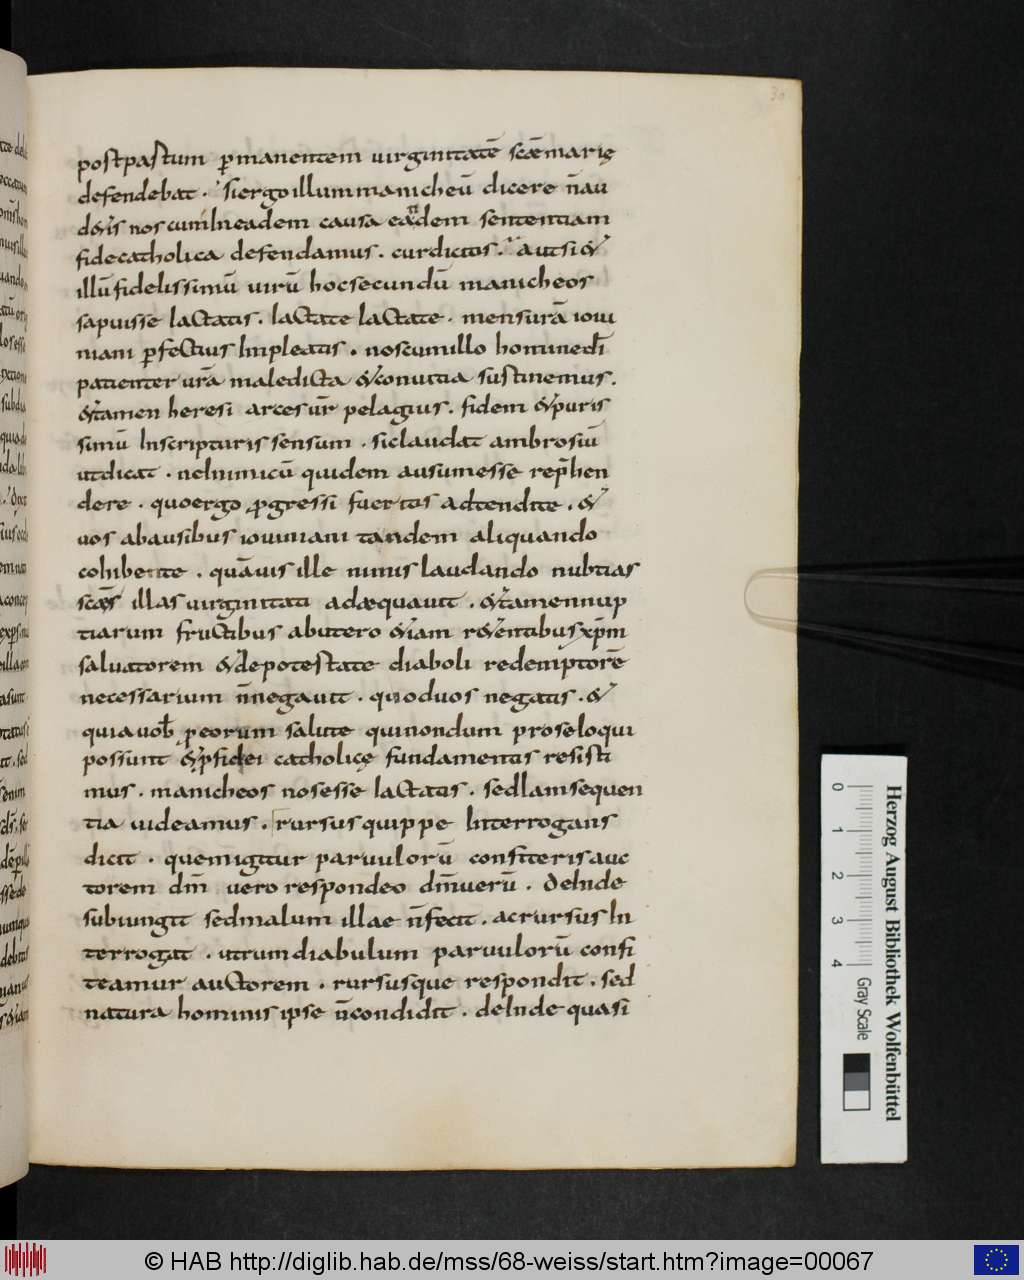 30
postpastum ꝑmanentem uirginitatē scǣ marię
defendebat · Si ergo illum manicheū dicere n̄ au
d&is nos cum In eadem causa eandem sententiam
fide catholica defendamus · cur dictos · aut si &
illū fidelissimū uirū hoc secundū manicheos
sapuisse Iactatis · Iactate Iactate · mensurā ioui
niani ꝑfectius Impleatis · nos cum illo homine dī
patienter urā maledicta & conuitia sustinemus ·
& tamen heresi arces ur̄ pelagius · fidem & puris
simū In scripturis sensum · sic laudat ambrosiū
ut dicat · ne Inimicū quidem ausum esse rep̄hen
dere · quo ergo ꝓgressi fueritis adtendite · &
uos ab ausibus iouiniani tandem aliquando
cohibete · quāuis ille nimis laudando nubtias
scǣs illas uirginitati adæquauit · & tamen nup
tiarum fructibus ab utero & iam r&entibus xp̄m
saluatorem & de potestate diaboli redemptorē
necessarium n̄ negauit · quod uos negatis · &
quia uob̄ p eorum salute qui nondum pro se loqui
possunt & p fidei catholicę fundamentis resisti
mus · manicheos nos esse Iactatis · sed Iam sequen
tia uideamus · rursus quippe Interrogans
dicit · quem igitur paruulorū confiteris auc
torem dm̄ uero respondeo dm̄ uerū · deInde
subiungit sed malum illae n̄ fecit · ac rursus In
terrogat · utrum diabulum paruulorū confi
teamur auctorem · rursusque respondit · sed
natura hominis ipse n̄ condidit · deInde quasi
0 1 2 3 4
Gray Scale
Herzog August Bibliothek Wolfenbüttel
© HAB http://diglib.hab.de/mss/68-weiss/start.htm?image=00067